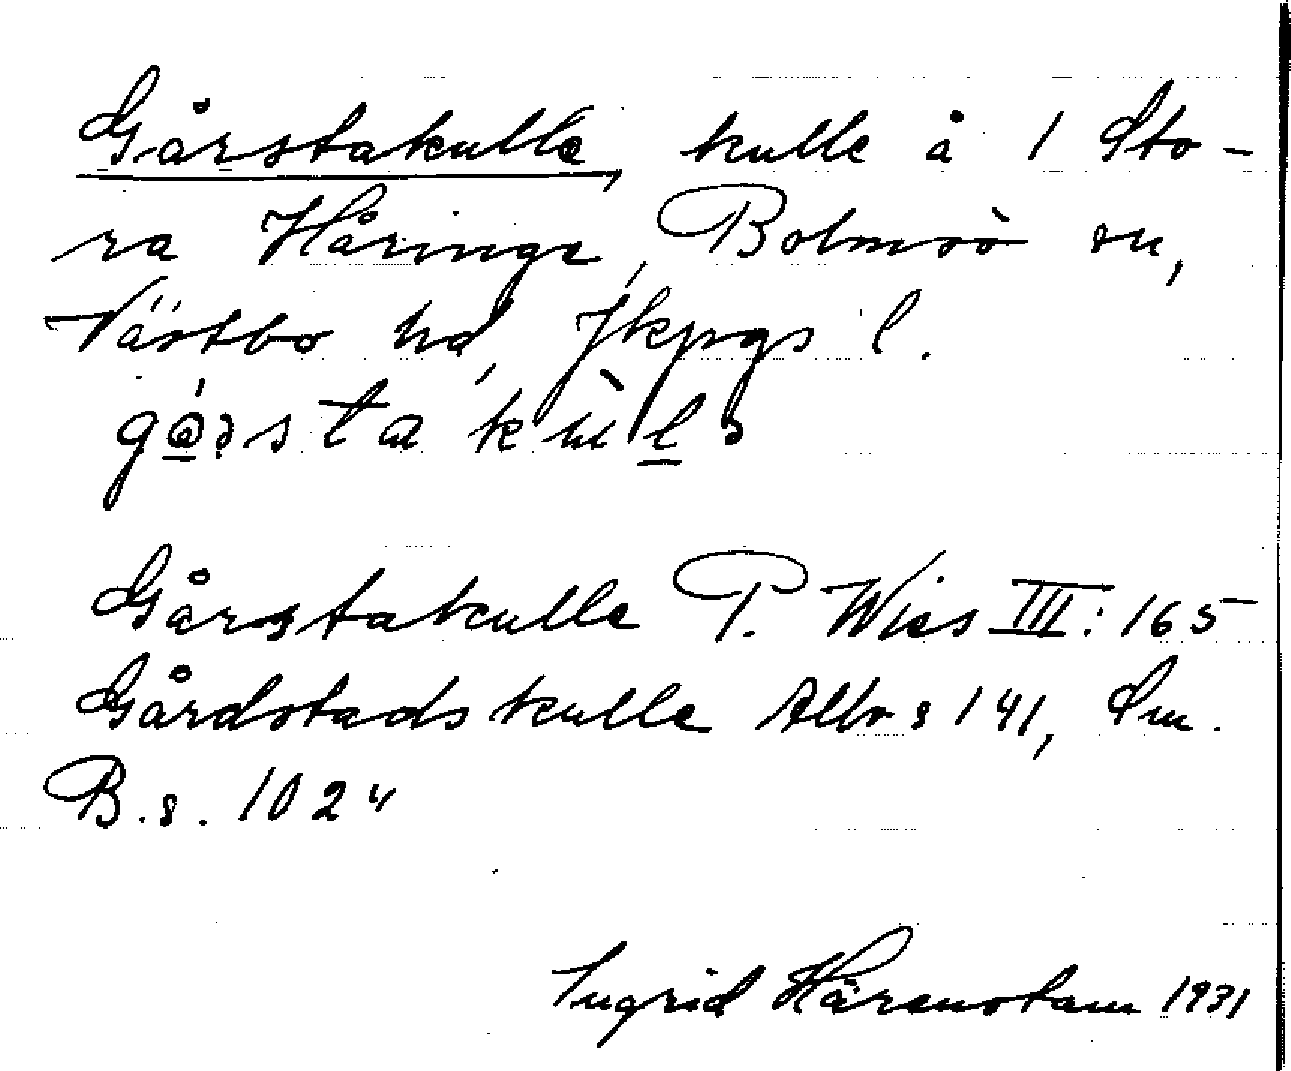 Gårstakulle, kulle å 1 Sto-
ra Håringe, Bolmsö sn,
Västbo hd, Jkpgs l.
Gårstakulle P. Wies III: 165
Gårdstadskulle Allvs 141, Sm.
B. s. 1024
Ingrid Härenstam 1931